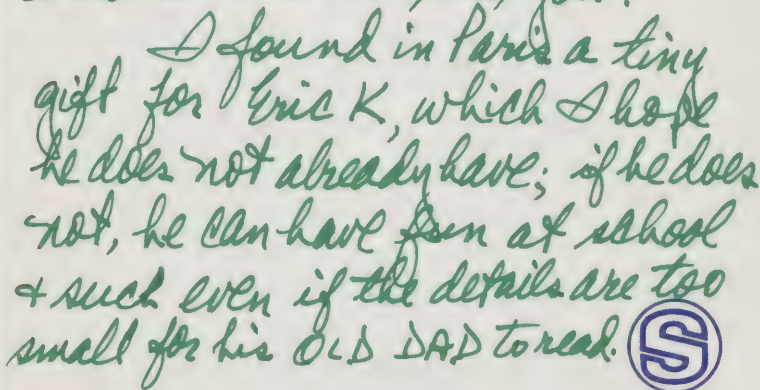 I found in Paris a tiny
gift for Eric K, which I hope
he does not already have; if he does
not, he can have fun at school
+ such even if the details are too
small for his OLD DAD to read. S